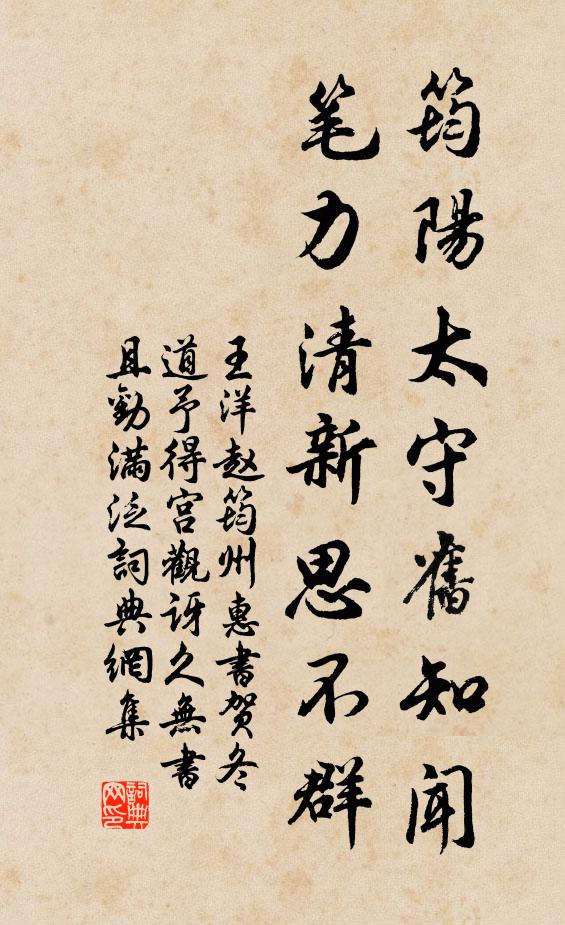 筠陽太守舊知聞
笔力清新思不群
王洋赵筠州惠書贺冬
道予得宫觀訝久無書
且勸满泛詞典網集
詞典网印